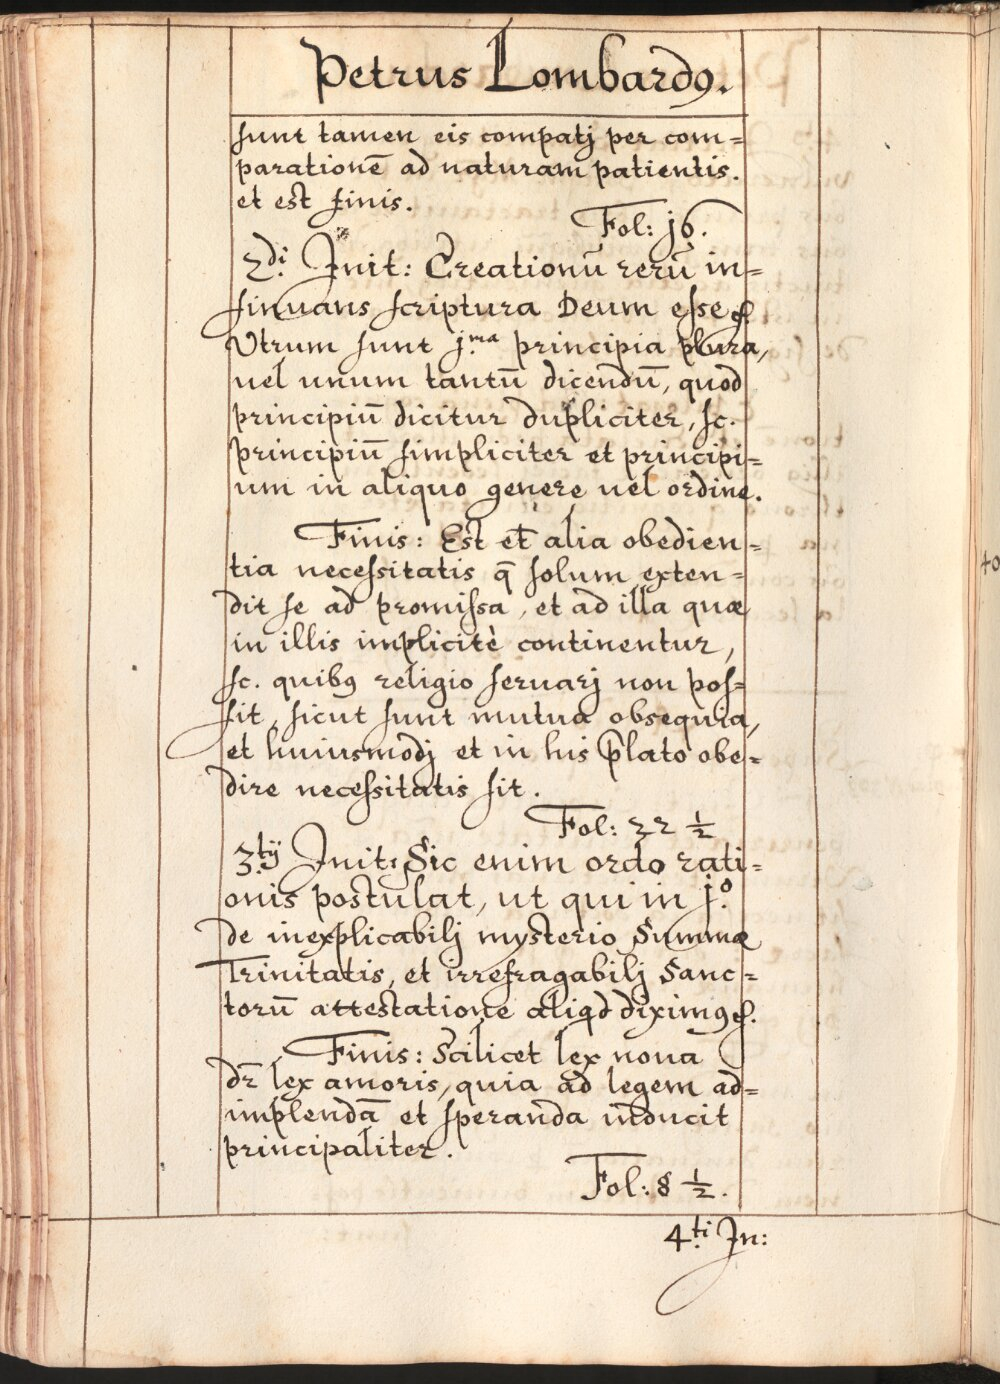 Petrus Lombardꝰ.
sunt tamen eis compatj per com=
parationē ad naturam patientis.
et est finis.
Fol: j6.
2.di Jnit: Creationū rerū in=
sinuans scriptura Deum esse &.
Vtrum sunt j.ma principia plura,
uel unum tantū dicendū, quod
principiū dicitur dupliciter, sc.
principiū simpliciter et principi=
um in aliquo genere uel ordine.
Finis: Est et̄ alia obedien=
tia necessitatis q̄ solum exten=
dit se ad promissa, et ad illa quæ
in illis implicitè continentur,
sc. quibꝰ religio seruarj non pos=
sit, sicut sunt mutua obsequia,
et huiusmodj et in his p̄lato obe=
dire necessitatis sit.
Fol: 22 ½
3.tij Jnit: Sic enim ordo rati=
onis postulat, ut qui in j.o
de inexplicabilj mysterio Summæ
Trinitatis, et irrefragabilj Sanc=
torū attestatione aliqd diximꝰ &.
Finis: Scilicet lex noua
dr̄ lex amoris, quia ad legem ad=
implendā et speranda inducit
principaliter.
Fol: 8 ½.
4.ti Jn:
40